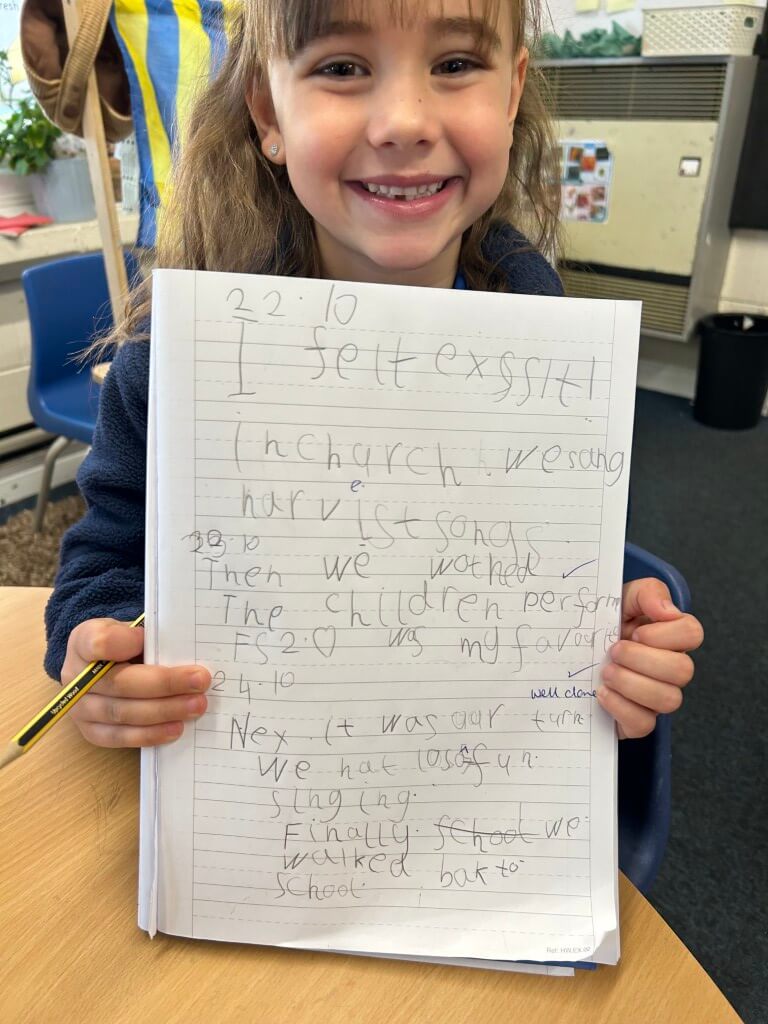 fresh
22.10
I felt exssfit!
in church. we sang
e
harvist songs.
23.10
Then we wothed ✓
The children perform
FS2.♡ was my favourite
✓
24.10
well done
Nex it was aar turn.
We hat losoffun
singing.
Finally school we
walked bak to
school.
Ref: HWLEX/02